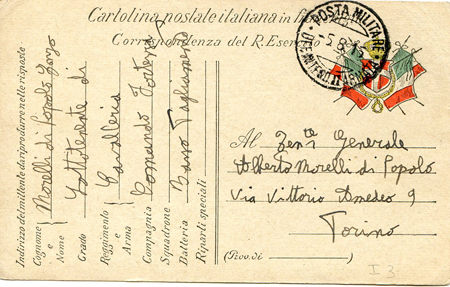 Cartolina postale italiana in
Corrispondenza del R. Esercito
POSTA MILITARE
5.8.15
Indirizzo del mittente da riprodurre nelle risposte
Cognome e Nome Morelli di Popolo Gorzo
Grado Sottotenente di
Reggimento e Arma Cavalleria
Compagnia Comando Fortezza
Squadrone
Batteria Basso Tagliamento
Riparti speciali
Al Tente Generale
Alberto Morelli di Popolo
Via Vittorio Amedeo 9
Torino
(Prov. di )
I 3